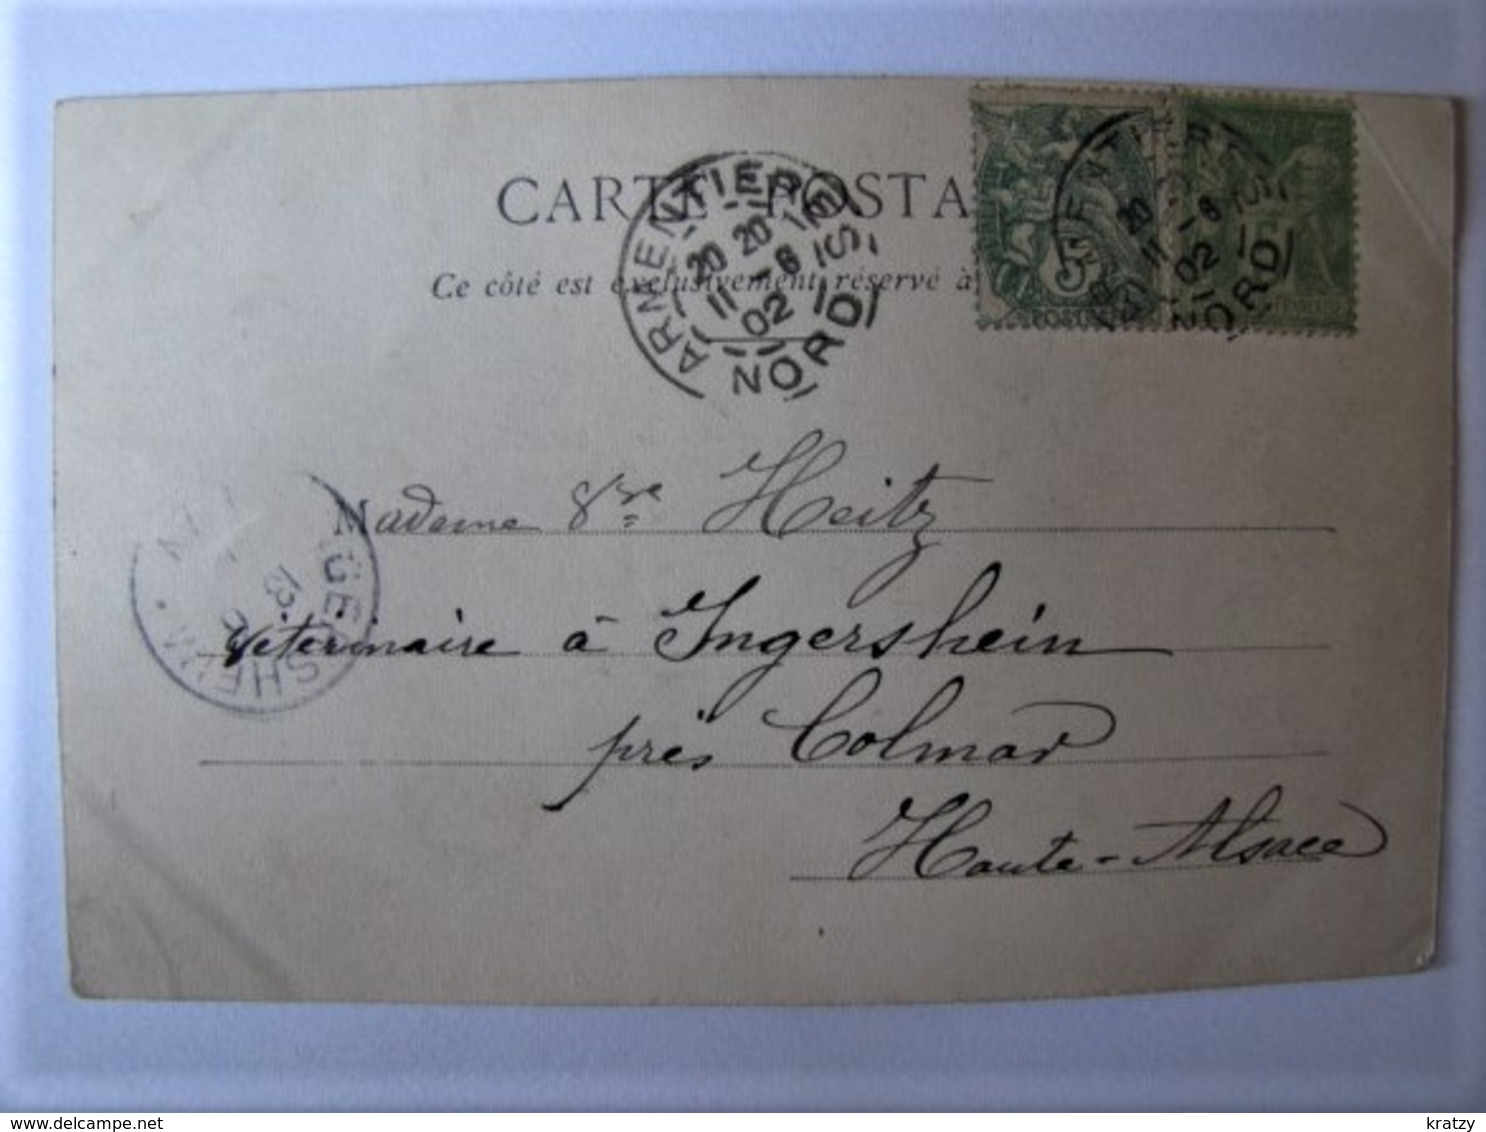 CARTE POSTA
Ce côté est exclusivement réservé à
ARMENTIERES
20 20
11 - 6
02
NORD
ARMENTIERES
20
11 - 6
02
NORD
5
5
POSTES
Madame Heitz
véterinaire à Ingersheim
près Colmar
Haute-Alsace
INGERSHEIM
13
delcampe.net
kratzy